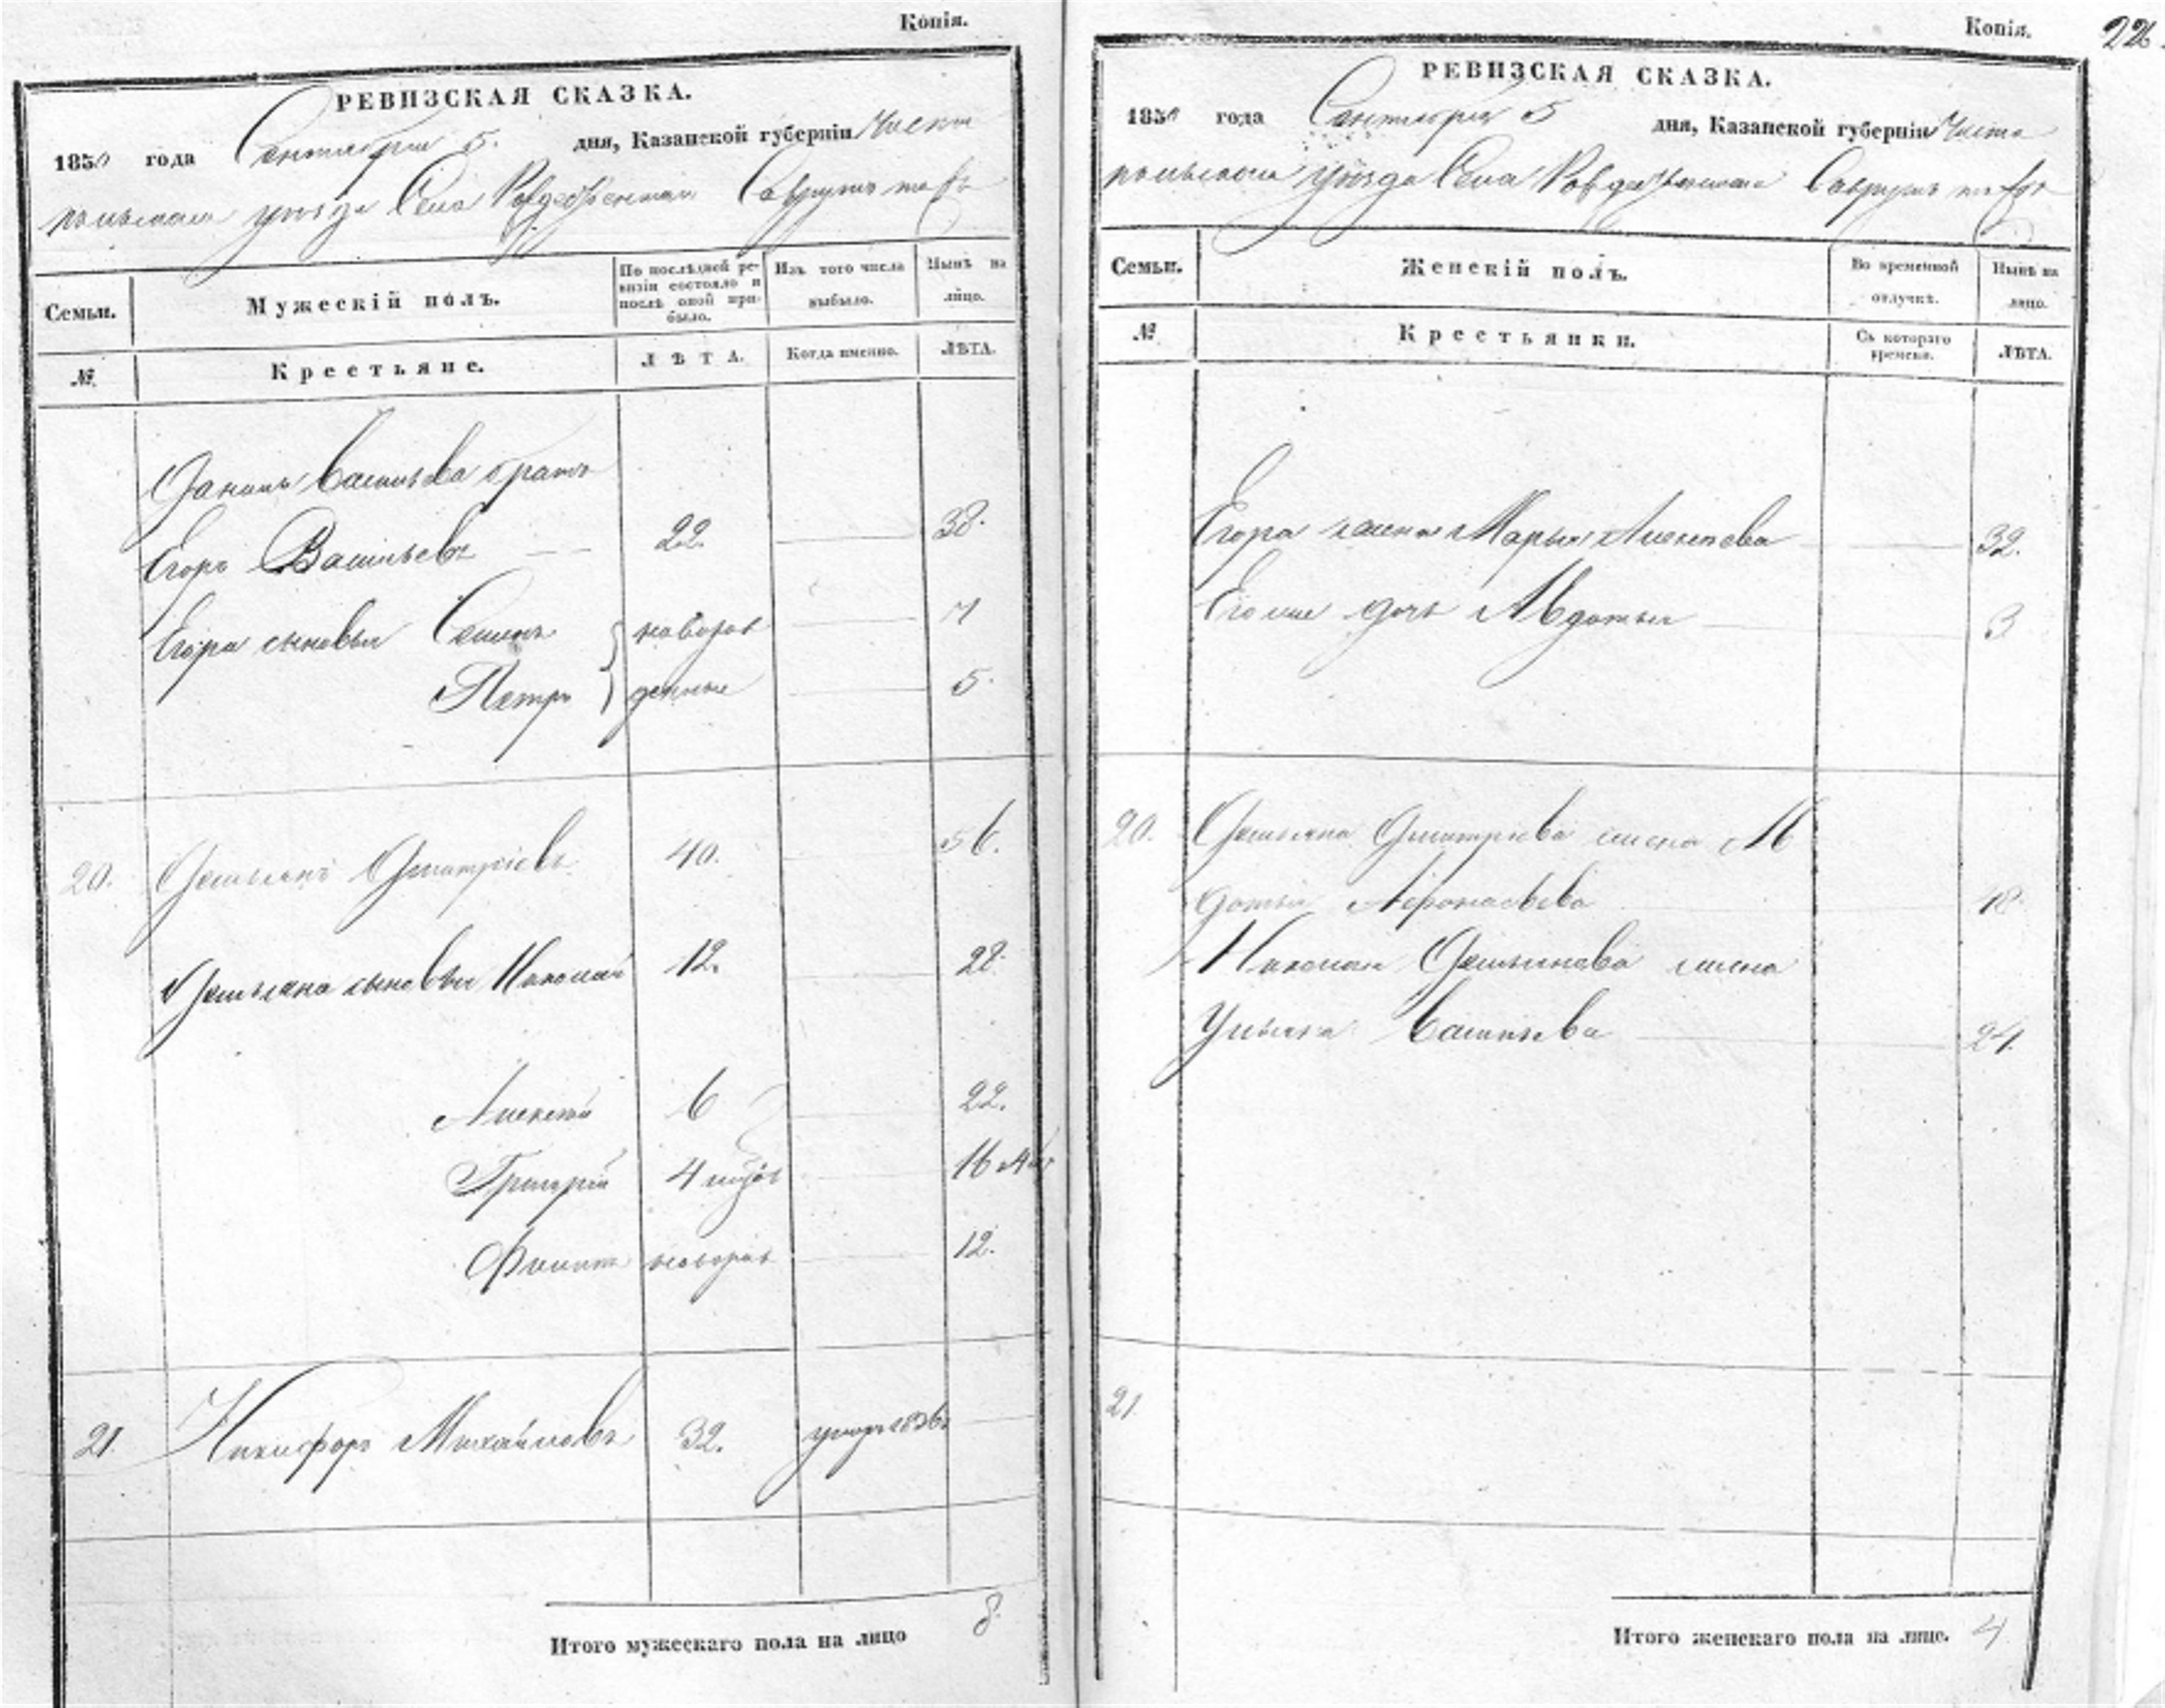 Копія.
РЕВИЗСКАЯ СКАЗКА.
1850 года Сентября 5. дня, Казанской губерніи Чисто
польскаго уѣзда Села Рождественскаго
Семьи.
Мужескій полъ.
По послѣдней ре-
визіи состояло и
послѣ оной при-
было.
Изъ того числа
выбыло.
Нынѣ на
лицо.
№
Крестьяне.
ЛѢТА.
Когда именно.
ЛѢТА.
Васильева братъ
Егоръ Васильевъ 22. 38.
Егора сыновья Семенъ новорож 7
Петръ денные 5.
20. Демьянъ Дмитріевъ 40. 56.
Демьяна сыновья Николай 12. 28.
Алексей 6 22.
Григорій 4 16
Филипъ новорож 12.
21. Никифоръ Михайловъ 32. умеръ 1836
Итого мужескаго пола на лицо 8.
Копія.
226.
РЕВИЗСКАЯ СКАЗКА.
1850 года Сентября 5 дня, Казанской губерніи Чисто
польскаго уѣзда Села Рождественскаго
Семьи.
Женскій полъ.
Во временной
отлучкѣ.
Нынѣ на
лицо.
№
Крестьянки.
Съ котораго
времени.
ЛѢТА.
Егора жена Марья Алексѣева 32.
Его же дочь Авдотья 3
20. Демьяна Дмитріева жена Ав
дотья Афонасьева 48.
Николая Демьянова жена
Ульяна Васильева 24.
21.
Итого женскаго пола на лицо. 4